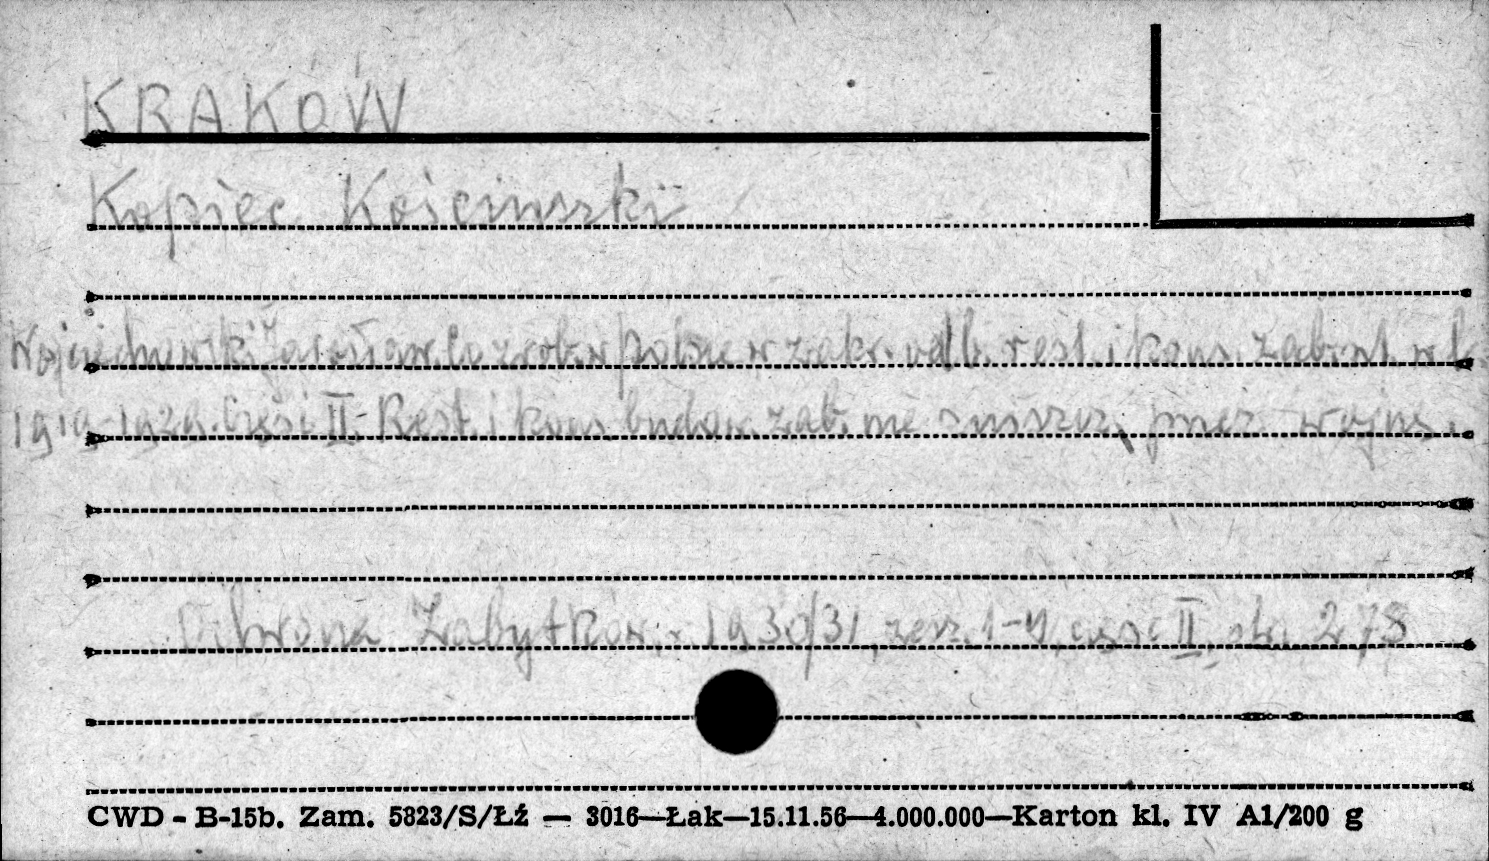 KRAKÓW
Kopiec Kościuszki
Wojciechowski Jarosław Co zrobiono w Polsce w zakr. odb. rest. i kons. zabyt. w l.
1919-1929. Część II. Rest. i kons. budow. zab. nie zniszcz. przez wojnę.
Ochrona Zabytków, 1930/31, zesz. 1-4, część II, str. 278
CWD - B-15b. Zam. 5823/S/Łź — 3016—Łak—15.11.56—4.000.000—Karton kl. IV A1/200 g